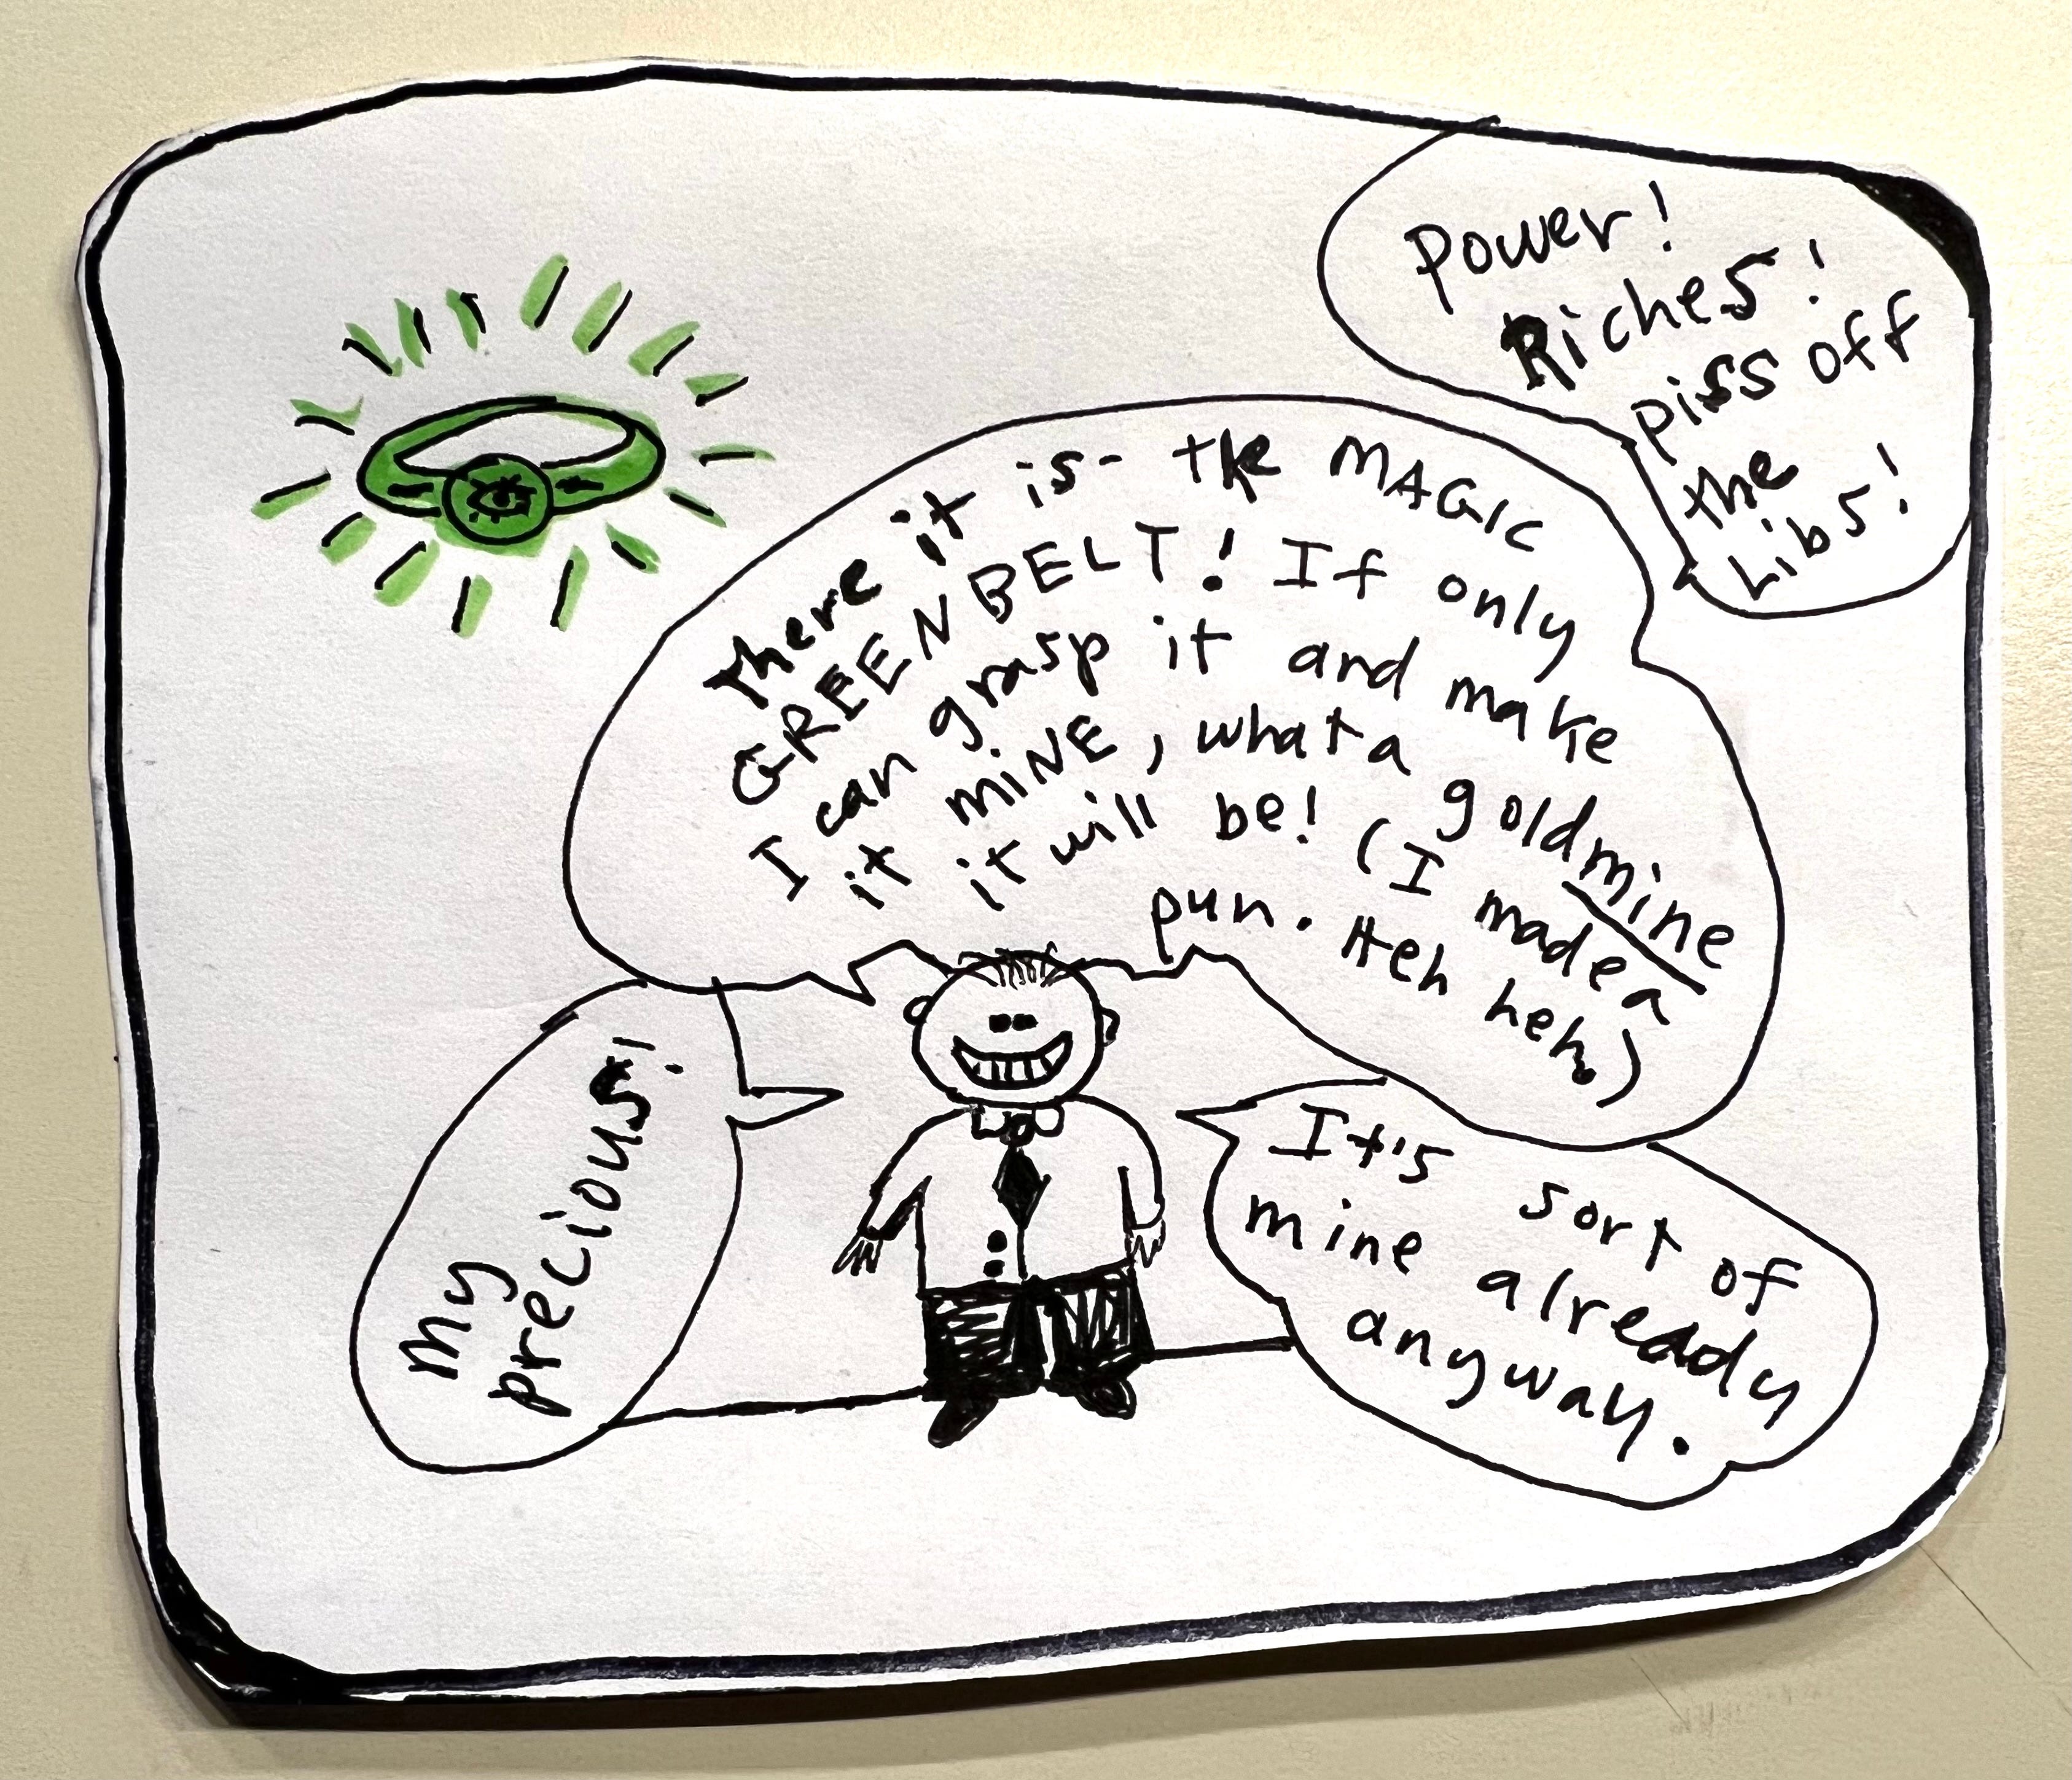 Power!
Riches!
piss off
the
Libs!
There it is - the MAGIC
GREENBELT! If only
I can grasp it and make
it MINE, what a goldmine
it will be! (I made a
pun. Heh heh)
My
precious!
It's sort of
mine already
anyway.